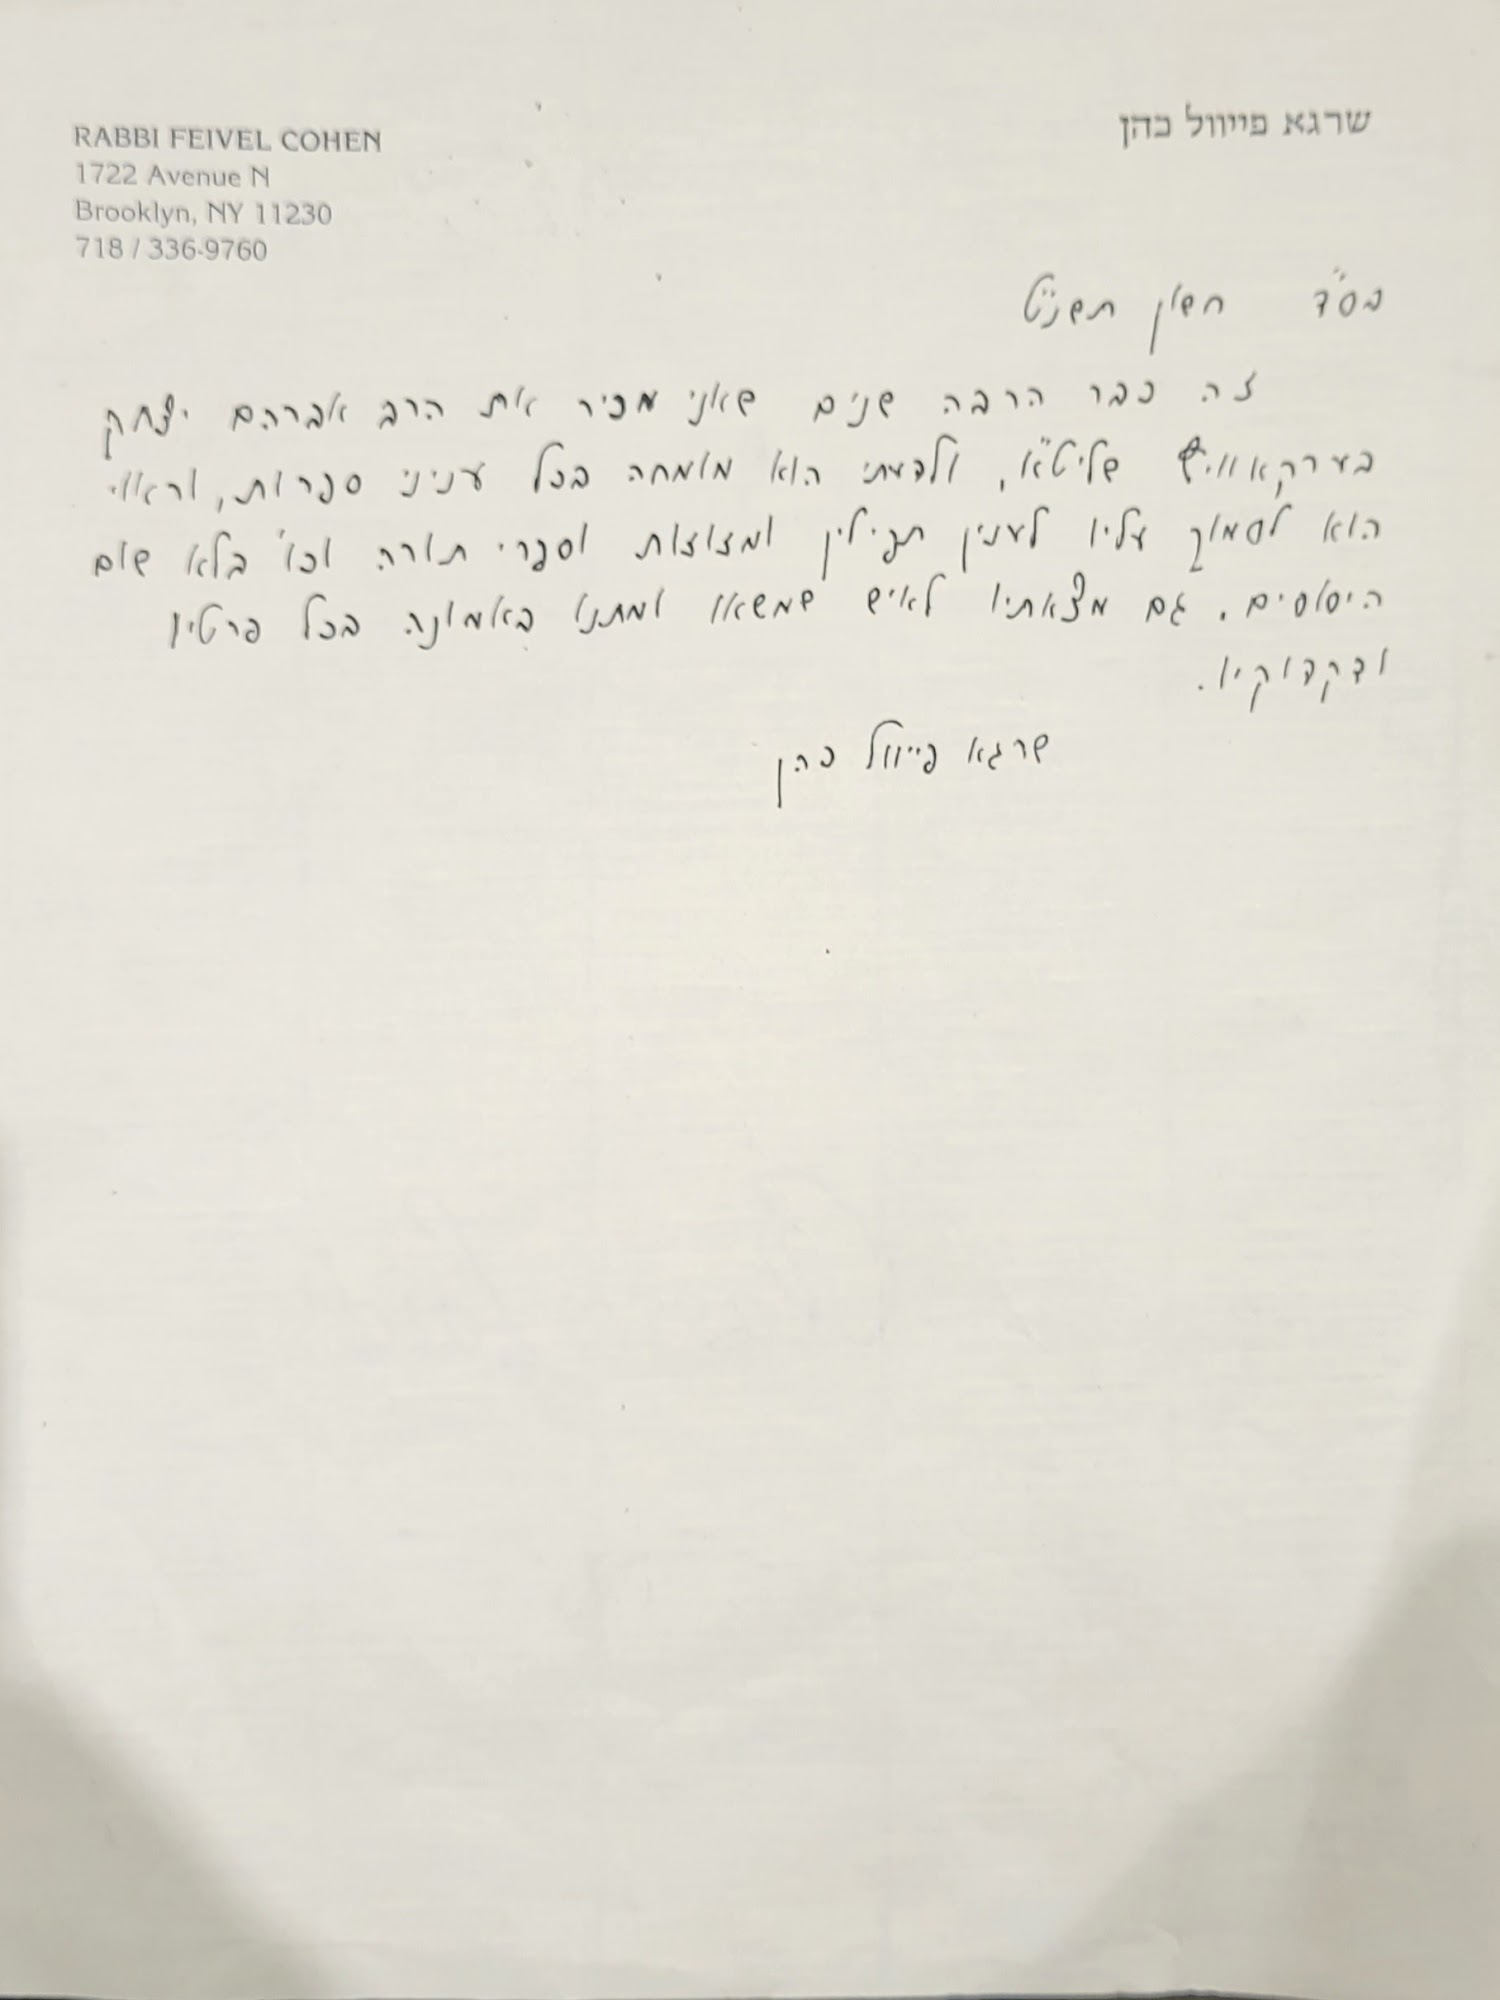 שרגא פייוול כהן
RABBI FEIVEL COHEN
1722 Avenue N
Brooklyn, NY 11230
718 / 336-9760
בס"ד חשון תשנ"ט
זה כבר הרבה שנים שאני מכיר את הרב אברהם יצחק
בערקאוויץ שליט"א, ולדעתי הוא מומחה בכל עניני ספרות, וראוי
הוא לסמוך עליו לענין תפילין ומזוזות וספרי תורה וכו' בלא שום
היסוסים. גם מצאתיו לאיש שמשאו ומתנו באמונה בכל פרטיו
ודקדוקיו.
שרגא פייוול כהן